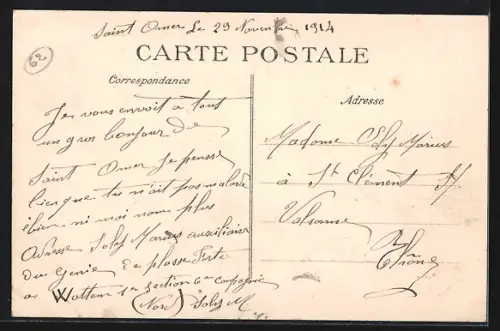 Saint Omer Le 29 Novembre 1914
62
CARTE POSTALE
Correspondance
Adresse
Je vous envoit a tout
un gros bonjour de
Saint Omer Je pense
bien que tu n'ait pas malade
bien ni moi non plus
Adresse Soly Marius auxiliaire
du Genie
a Watten 1e section 6e compagnie
(Nord) Soly M.
Madame Soly Marius
à St Clément
Valsonne
Rhône